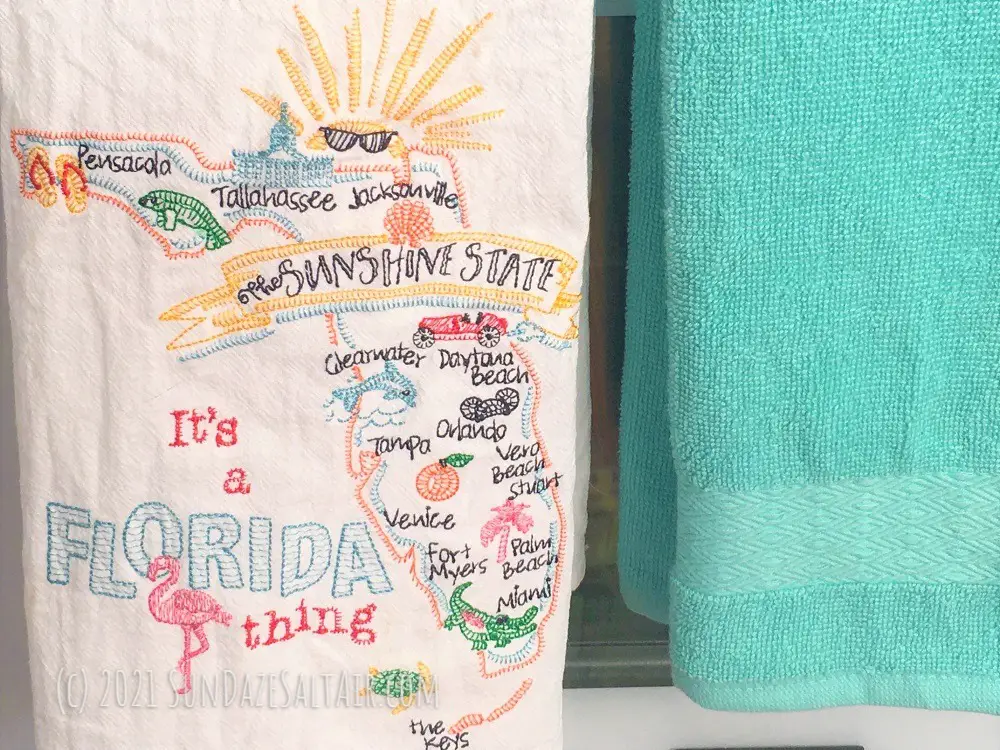 Pensacola
Tallahassee Jacksonville
the SUNSHINE STATE
Clearwater Daytona
Beach
Orlando
Tampa
Vero
Beach
Stuart
Venice
Fort
Myers
Palm
Beach
Miami
It's
a
FLORIDA
thing
the
Keys
(C) 2021 SunDazeSaltAir.com